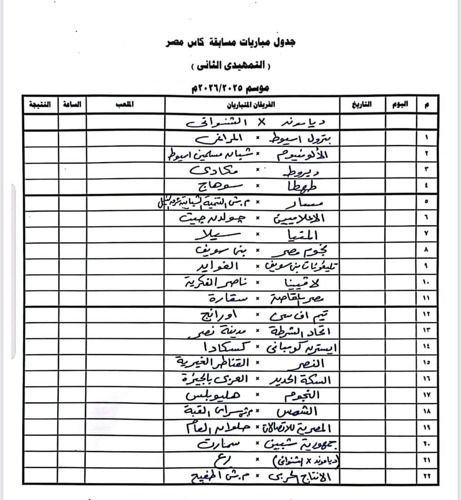 جدول مباريات مسابقة كاس مصر
( التمهيدى الثانى )
موسم ٢٠٢٦/٢٠٢٥م
م اليوم التاريخ الفريقان المتباريان الملعب الساعة النتيجة
دياموند × الشنوانى
١ بترول اسيوط × المراغى
٢ الألومنيوم × شبان مسلمين اسيوط
٣ ديروط × مكادى
٤ طهطا × سوهاج
٥ مسار × م.ش التنمية الشبابية
٦ الاعلاميين × جولدن جيت
٧ المنيا × سيلا
٨ نجوم مصر × بنى سويف
٩ تليفونات بنى سويف × الفوايد
١٠ لافيينا × ناصر الفكرية
١١ مصر بالمقاصة × سقارة
١٢ تيم اف سى × اورانج
١٣ اتحاد الشرطة × مدينة نصر
١٤ ايسترن كومبانى × كسكادا
١٥ النصر × القناطر الخيرية
١٦ السكة الحديد × العربى بالجيزة
١٧ النجوم × هليوبلس
١٨ الشمس × م.ش سراى القبة
١٩ المصرية للاتصالات × حلوان العام
٢٠ جمهورية شبين × سمارت
٢١ (دياموند × الشنوانى) × رع
٢٢ الانتاج الحربى × م.ش